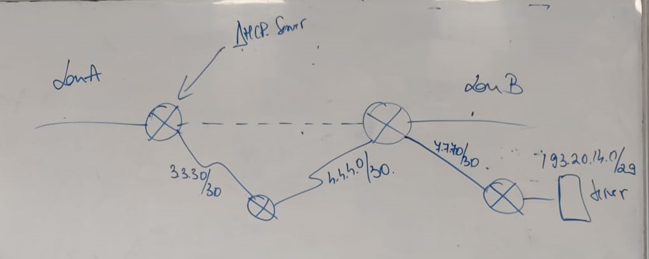 DHCP. Server
Lan A
Lan B
3.3.3.0/30
4.4.4.0/30.
7.7.7.0/30.
193.20.14.0/29
Server